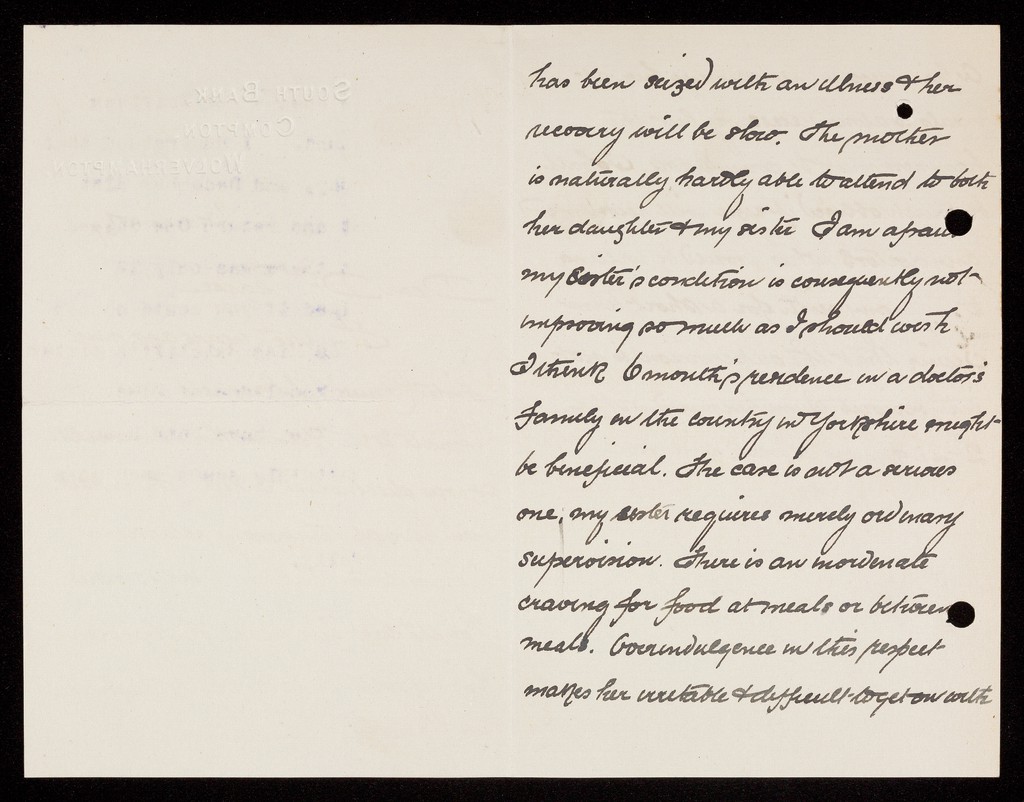 SOUTH BANK
COMPTON
WOLVERHAMPTON
has been seized with an illness & her
recovery will be slow. The mother
is naturally hardly able to attend to both
her daughter & my sister I am afraid
my sister's condition is consequently not
improving so much as I should wish
I think 6 month's residence in a doctor's
family in the country in Yorkshire might
be beneficial. The case is not a serious
one, my sister requires merely ordinary
supervision. There is an inordinate
craving for food at meals or between
meals. Overindulgence in this respect
makes her irritable & difficult to get on with